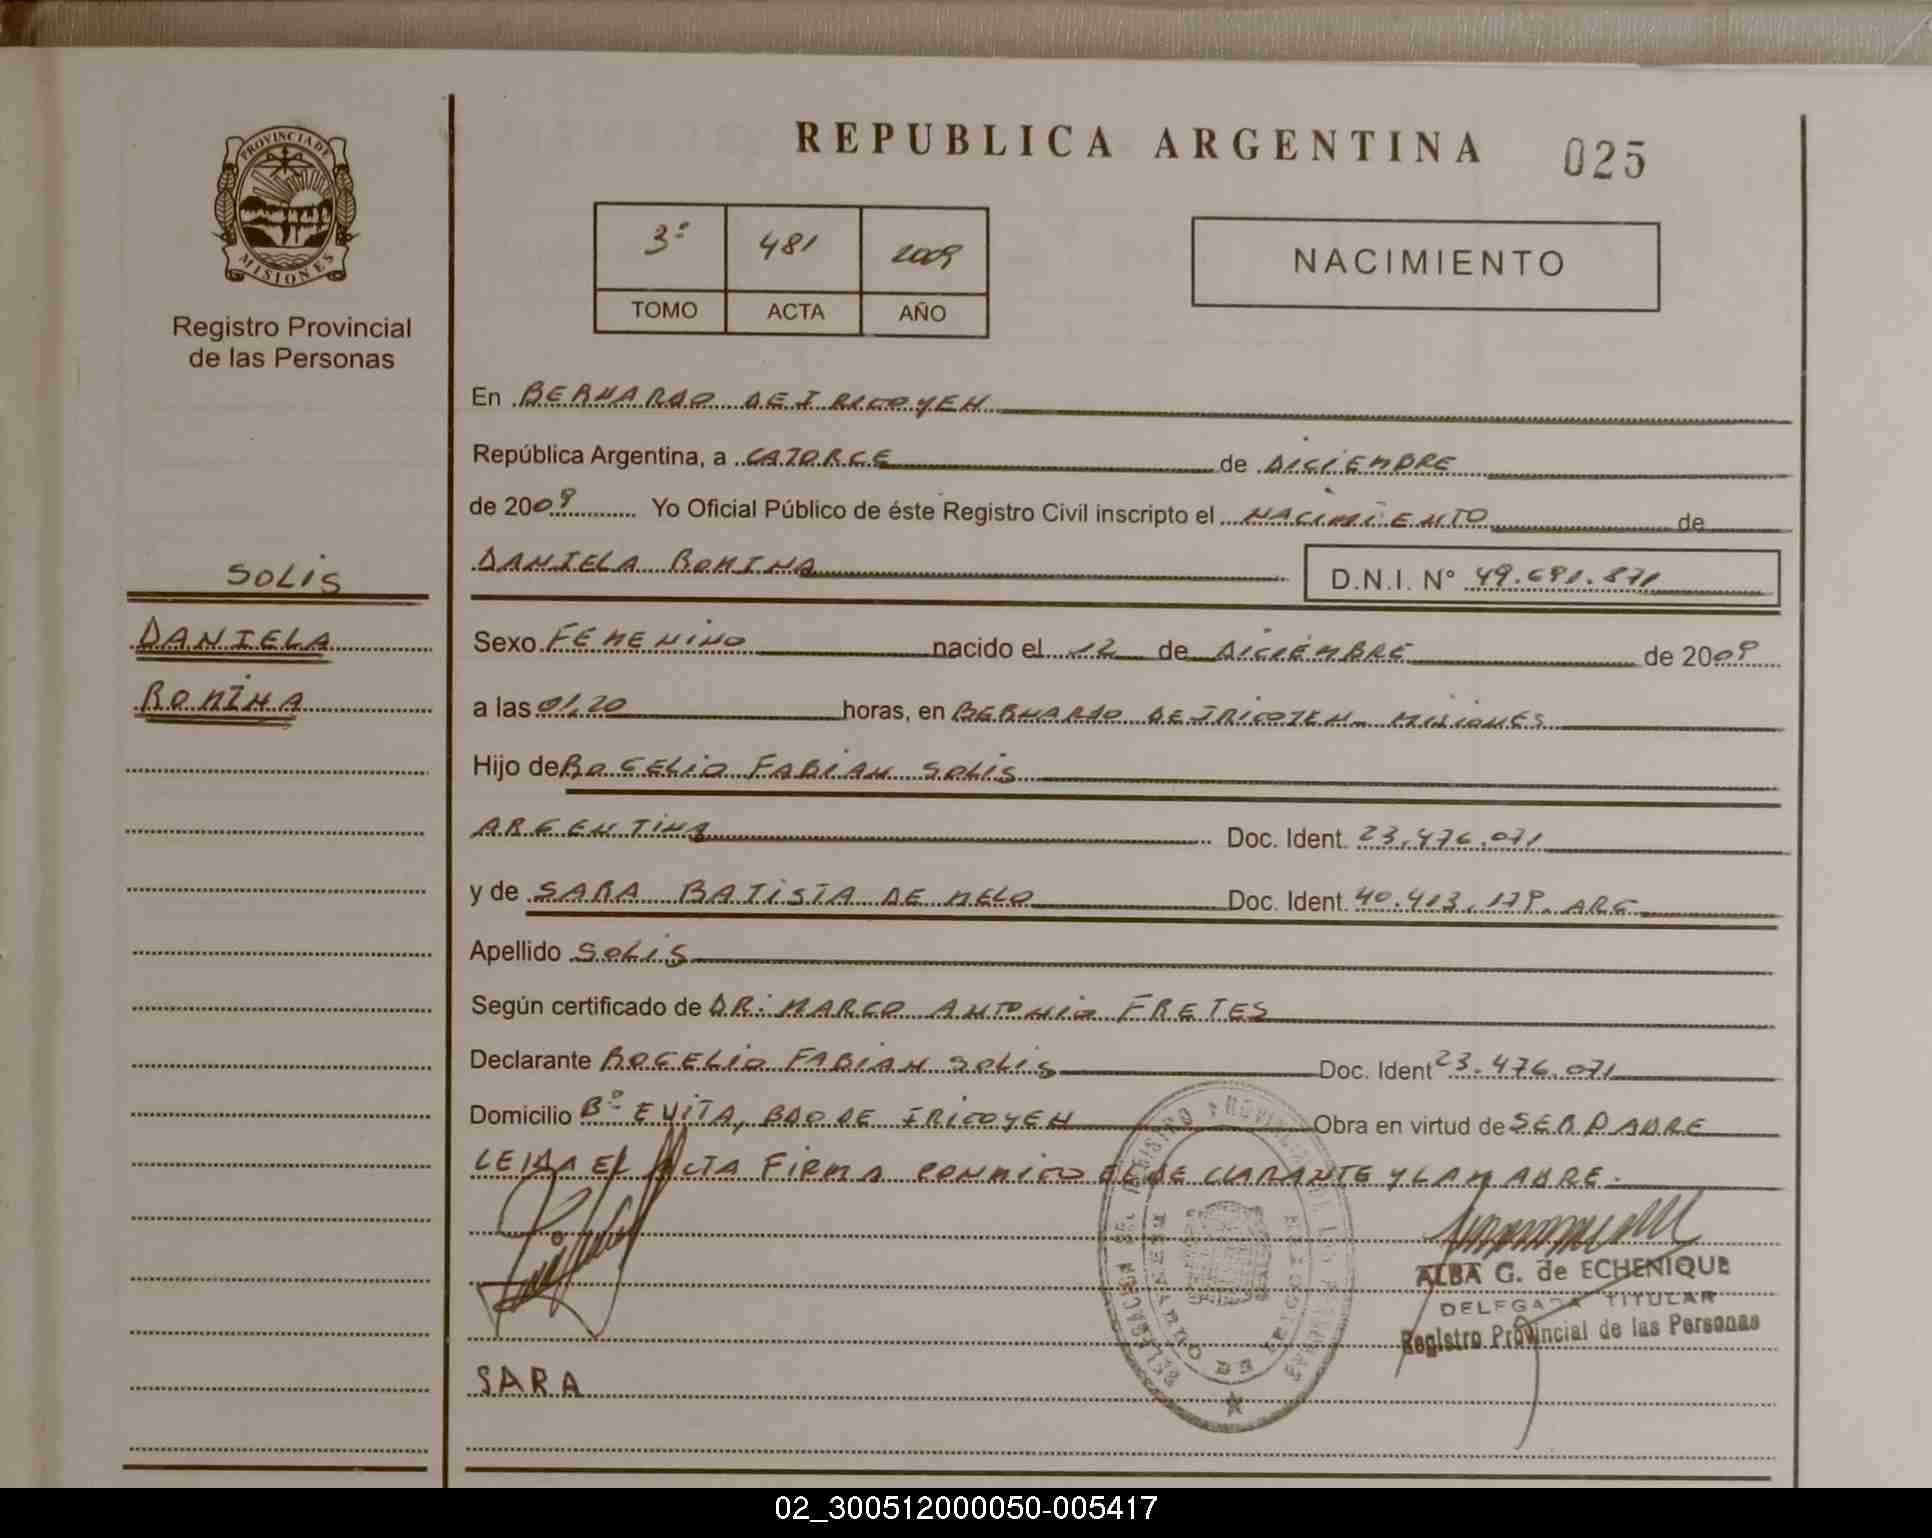 REPUBLICA ARGENTINA 025
PROVINCIA DE
MISIONES
Registro Provincial
de las Personas
3º 481 2009
TOMO ACTA AÑO
NACIMIENTO
En BERNARDO DE IRIGOYEN
República Argentina, a CATORCE de DICIEMBRE
de 2009 Yo Oficial Público de éste Registro Civil inscripto el NACIMIENTO de
DANIELA ROMINA D.N.I. N° 49.691.871
SOLIS
DANIELA
ROMINA
Sexo FEMENINO nacido el 12 de DICIEMBRE de 2009
a las 01,20 horas, en BERNARDO DE IRIGOYEN - MISIONES
Hijo de ROGELIO FABIAN SOLIS
ARGENTINA Doc. Ident. 23.476.071
y de SARA BATISTA DE MELO Doc. Ident. 40.413.179. ARG
Apellido SOLIS
Según certificado de DR: MARCO ANTONIO FRETES
Declarante ROGELIO FABIAN SOLIS Doc. Ident 23.476.071
Domicilio Bº EVITA, BDO DE IRIGOYEN Obra en virtud de SER PADRE
LEIDA EL ACTA FIRMA CONMIGO EL DECLARANTE Y LA MADRE.
ALBA G. de ECHENIQUE
DELEGADA TITULAR
Registro Provincial de las Personas
SARA
02_300512000050-005417